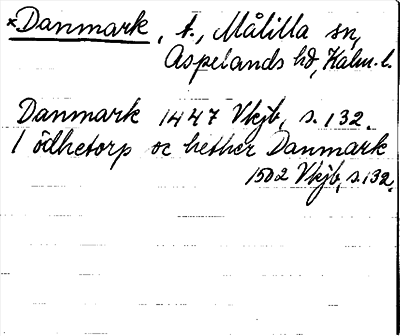 *Danmark, t., Målilla sn,
Aspelands hd, Kalm. l.
Danmark 1447 Vkjb, s. 132.
1 ödhetorp oc hether Danmark
1502 Vkjb, s. 132.